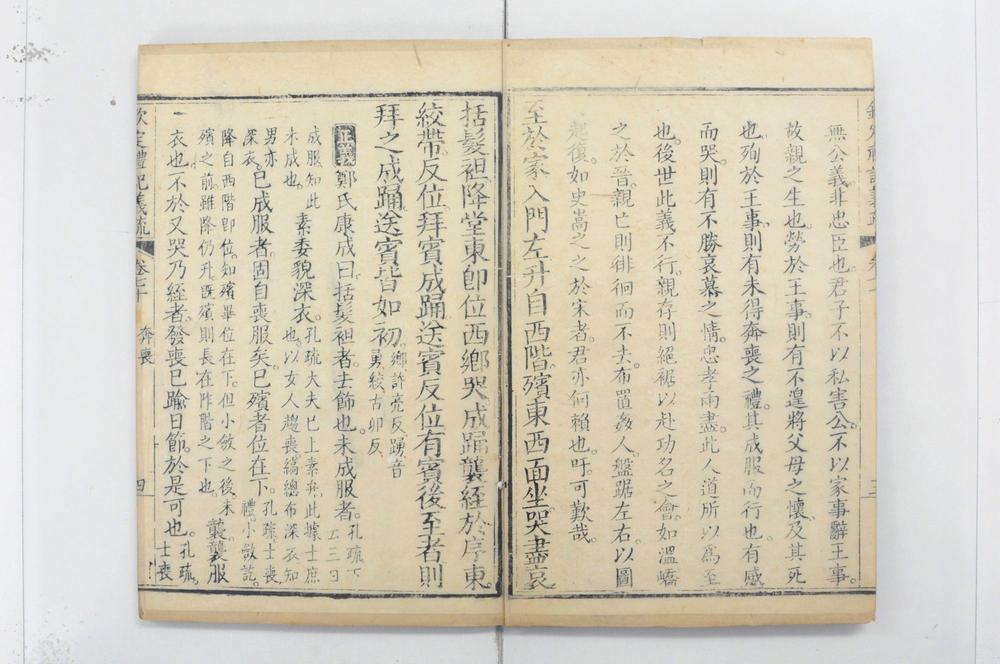 無公義非忠臣也君子不以私害公不以家事辭王事
故親之生也勞於王事則有不遑將父母之懷及其死
也殉於王事則有未得奔喪之禮其成服而行也有感
而哭則有不勝哀慕之情忠孝兩盡此人道所以為至
也後世此義不行親存則絕裾以赴功名之會如溫嶠
之於晉親亡則徘徊而不去布置姦人盤踞左右以圖
起復如史嵩之之於宋者君亦何賴也吁可歎哉
至於家入門左升自西階殯東西面坐哭盡哀
括髮袒降堂東即位西鄉哭成踊襲絰於序東
絞帶反位拜賓成踊送賓反位有賓後至者則
拜之成踊送賓皆如初鄉許亮反踊音勇絞古卯反
正義鄭氏康成曰括髮袒者去飾也未成服者孔疏下云三日
成服知此未成也素委貌深衣也孔疏大夫已上素弁此據士庶也以女人趨喪縞總布深衣知
男亦深衣已成服者固自喪服矣已殯者位在下孔疏士喪禮小斂訖
降自西階即位知殯畢位在下但小斂之後未殯之前雖降仍升既殯則長在阼階之下也襲襲服
衣也不於又哭乃絰者發喪已踰日節於是可也孔疏士喪
欽定禮記義疏 卷七十 奔喪 四